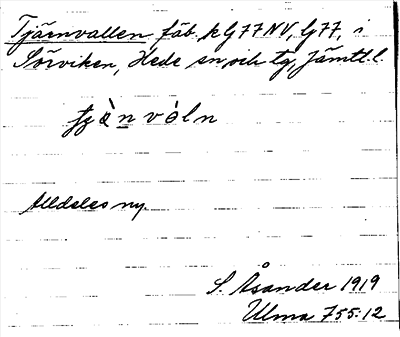 Tjärnvallen, fäb. k G77NV, G77, i
Sörviken, Hede sn och tg, Jämtl. l.
Alldeles ny.
S. Åsander 1919
Ulma 755:12